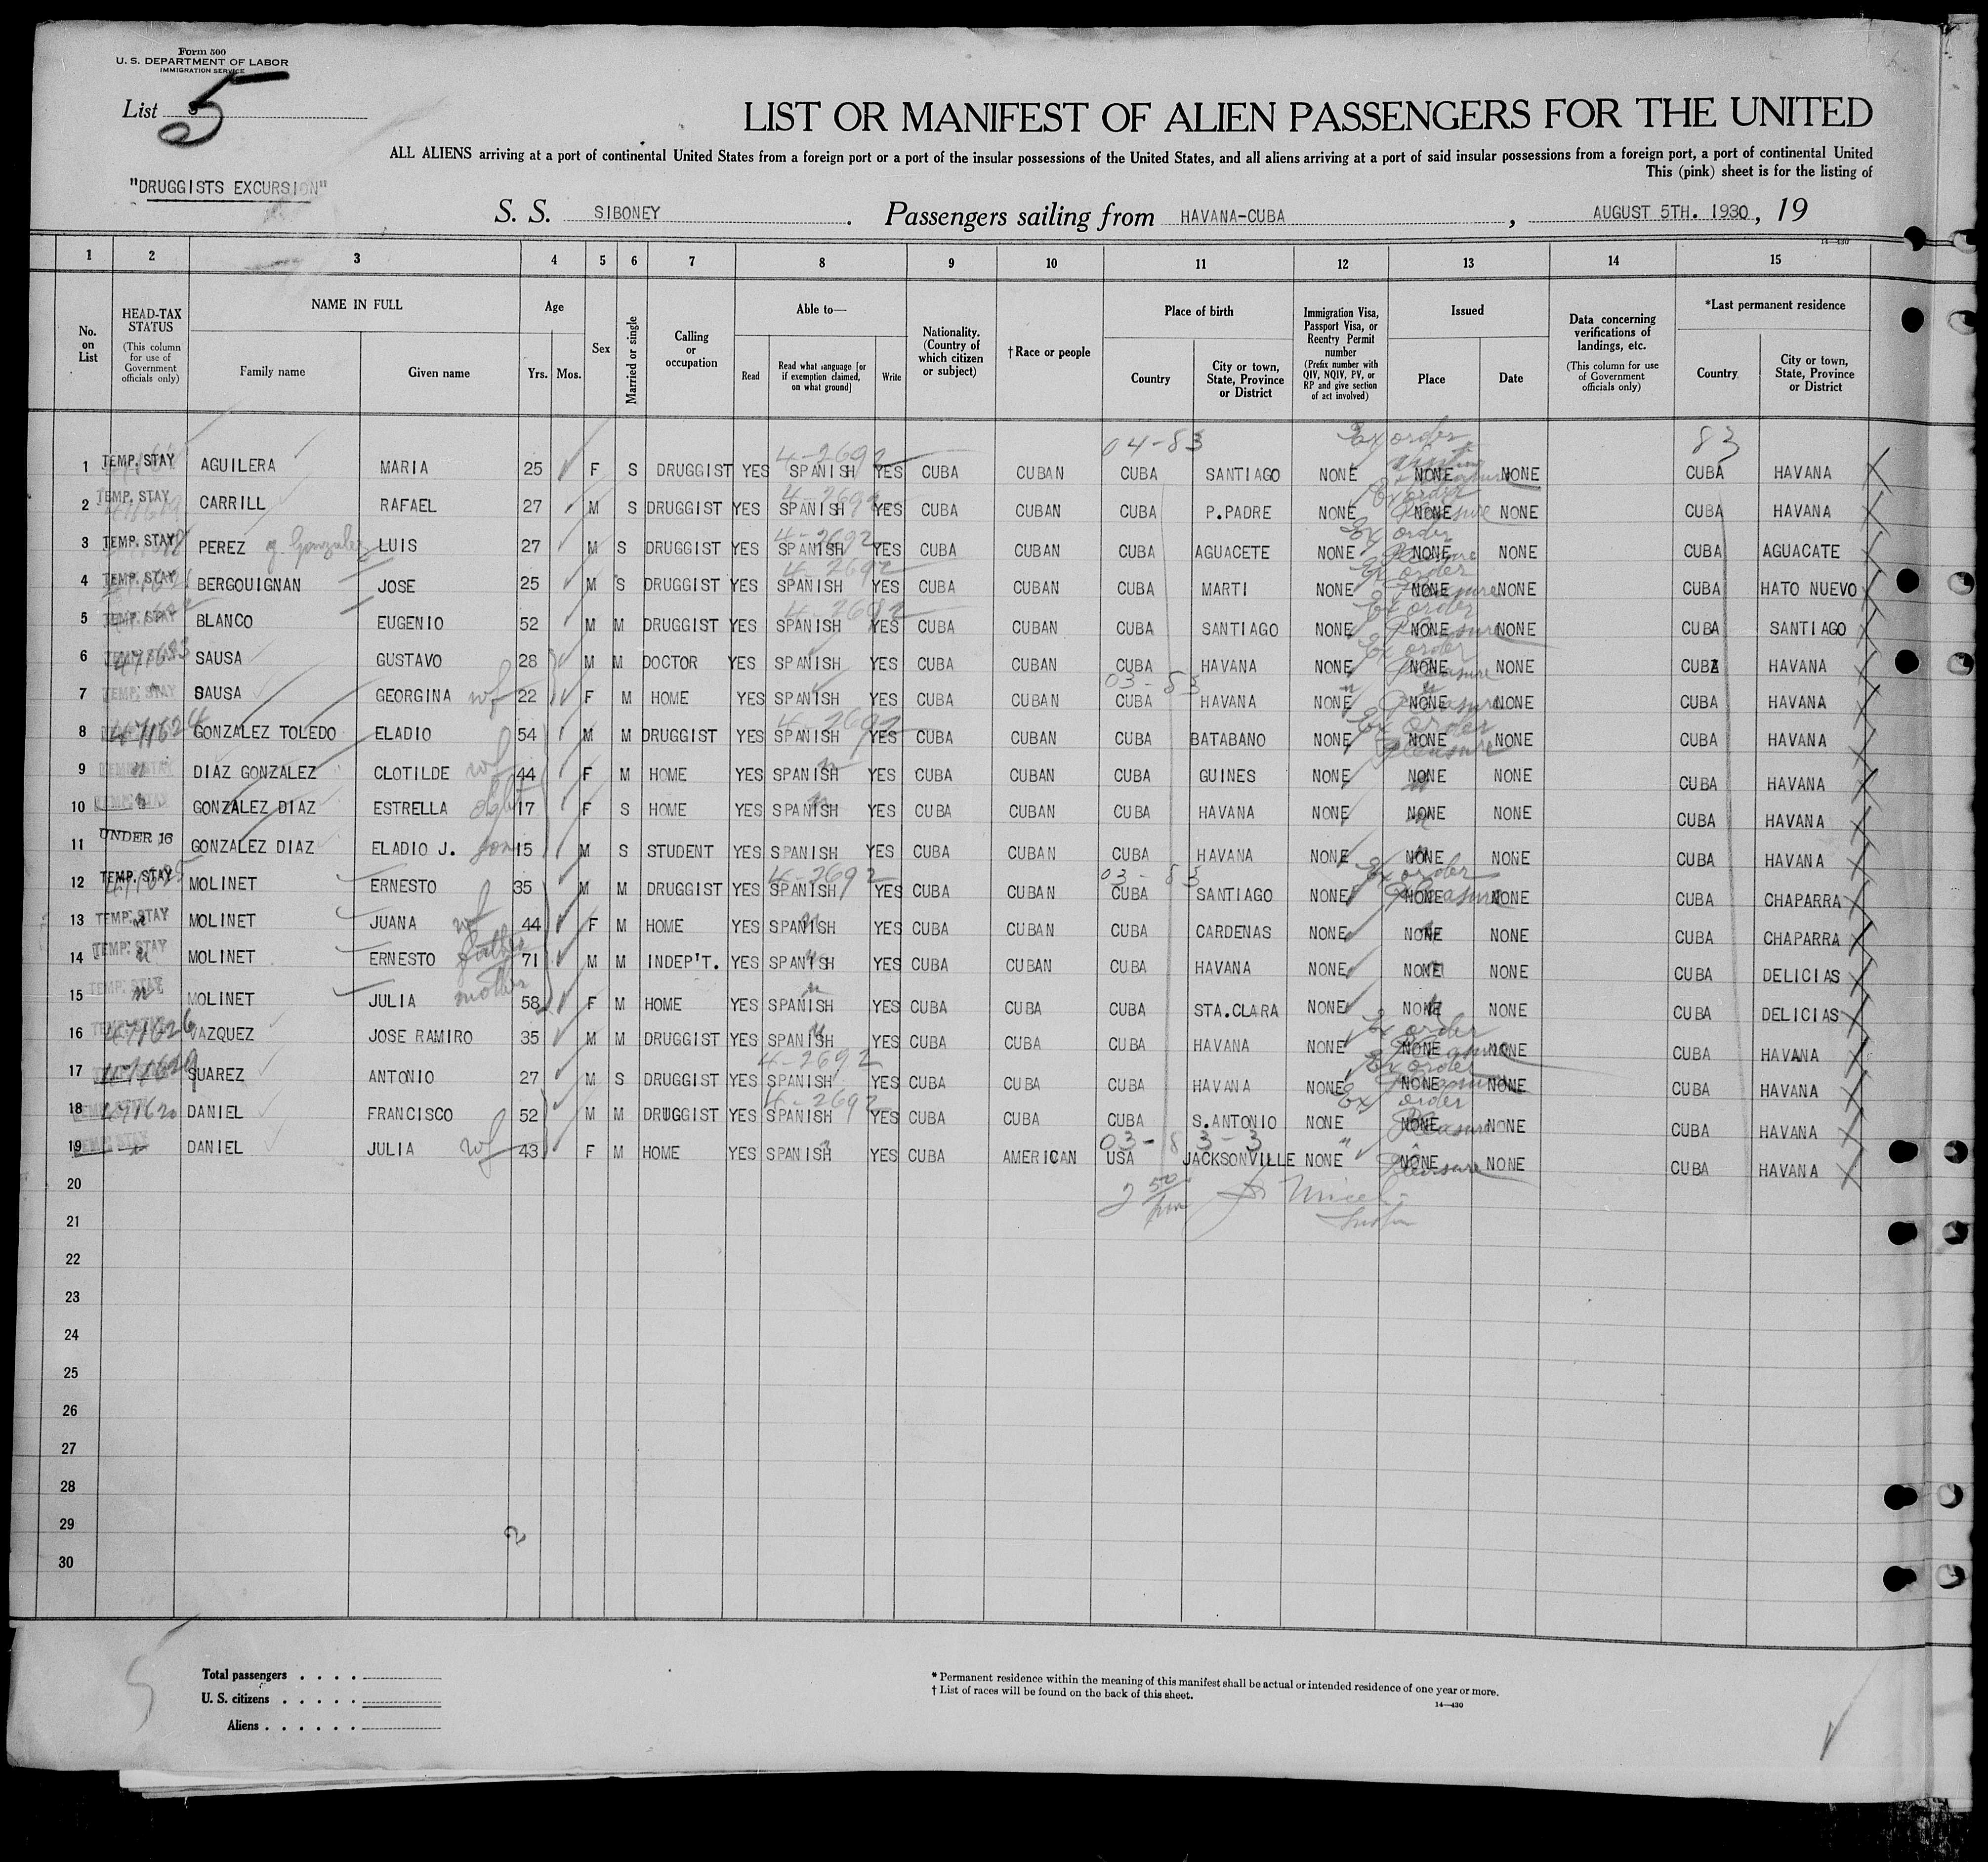 Form 500
U. S. DEPARTMENT OF LABOR
IMMIGRATION SERVICE
List 5
LIST OR MANIFEST OF ALIEN PASSENGERS FOR THE UNITED
ALL ALIENS arriving at a port of continental United States from a foreign port or a port of the insular possessions of the United States, and all aliens arriving at a port of said insular possessions from a foreign port, a port of continental United
This (pink) sheet is for the listing of
"DRUGGISTS EXCURSION"
S. S. SIBONEY. Passengers sailing from HAVANA-CUBA, AUGUST 5TH. 1930, 19
14—430
1 2 3 4 5 6 7 8 9 10 11 12 13 14 15
No. on List
HEAD-TAX STATUS (This column for use of Government officials only)
NAME IN FULL
Family name Given name
Age
Yrs. Mos.
Sex
Married or single
Calling or occupation
Able to—
Read Read what language [or if exemption claimed, on what ground] Write
Nationality. (Country of which citizen or subject)
†Race or people
Place of birth
Country City or town, State, Province or District
Immigration Visa, Passport Visa, or Reentry Permit number (Prefix number with QIV, NQIV, PV, or RP and give section of act involved)
Issued
Place Date
Data concerning verifications of landings, etc. (This column for use of Government officials only)
*Last permanent residence
Country City or town, State, Province or District
4-2692 04-83 Ex order 83
1 TEMP. STAY AGUILERA MARIA 25 F S DRUGGIST YES SPANISH YES CUBA CUBAN CUBA SANTIAGO NONE NONE NONE CUBA HAVANA
4-2692 Ex order
2 TEMP. STAY CARRILL RAFAEL 27 M S DRUGGIST YES SPANISH YES CUBA CUBAN CUBA P.PADRE NONE NONE Pleasure NONE CUBA HAVANA
4-2692 Ex order
3 TEMP. STAY PEREZ y Gonzalez LUIS 27 M S DRUGGIST YES SPANISH YES CUBA CUBAN CUBA AGUACETE NONE NONE Pleasure NONE CUBA AGUACATE
4-2692 Ex order
4 TEMP. STAY BERGOUIGNAN JOSE 25 M S DRUGGIST YES SPANISH YES CUBA CUBAN CUBA MARTI NONE NONE Pleasure NONE CUBA HATO NUEVO
4-2692 Ex order
5 TEMP. STAY BLANCO EUGENIO 52 M M DRUGGIST YES SPANISH YES CUBA CUBAN CUBA SANTIAGO NONE NONE Pleasure NONE CUBA SANTIAGO
Ex order
6 471623 SAUSA GUSTAVO 28 M M DOCTOR YES SPANISH YES CUBA CUBAN CUBA HAVANA NONE NONE Pleasure NONE CUBA HAVANA
03-83
7 TEMP. STAY SAUSA GEORGINA wf 22 F M HOME YES SPANISH YES CUBA CUBAN CUBA HAVANA NONE NONE Pleasure NONE CUBA HAVANA
4-2692 Ex order
8 471624 GONZALEZ TOLEDO ELADIO 54 M M DRUGGIST YES SPANISH YES CUBA CUBAN CUBA BATABANO NONE NONE Pleasure NONE CUBA HAVANA
9 TEMP. STAY DIAZ GONZALEZ CLOTILDE wf 44 F M HOME YES SPANISH YES CUBA CUBAN CUBA GUINES NONE NONE NONE CUBA HAVANA
10 TEMP. STAY GONZALEZ DIAZ ESTRELLA 17 F S HOME YES SPANISH YES CUBA CUBAN CUBA HAVANA NONE NONE NONE CUBA HAVANA
11 UNDER 16 GONZALEZ DIAZ ELADIO J. son 15 M S STUDENT YES SPANISH YES CUBA CUBAN CUBA HAVANA NONE NONE NONE CUBA HAVANA
4-2692 03-83 Ex order
12 TEMP. STAY 471625 MOLINET ERNESTO 35 M M DRUGGIST YES SPANISH YES CUBA CUBAN CUBA SANTIAGO NONE NONE Pleasure NONE CUBA CHAPARRA
13 TEMP. STAY MOLINET JUANA wf 44 F M HOME YES SPANISH YES CUBA CUBAN CUBA CARDENAS NONE NONE NONE CUBA CHAPARRA
14 TEMP. STAY MOLINET ERNESTO father 71 M M INDEP'T. YES SPANISH YES CUBA CUBAN CUBA HAVANA NONE NONE NONE CUBA DELICIAS
15 TEMP. STAY MOLINET JULIA mother 58 F M HOME YES SPANISH YES CUBA CUBA CUBA STA.CLARA NONE NONE NONE CUBA DELICIAS
Ex order
16 471626 VAZQUEZ JOSE RAMIRO 35 M M DRUGGIST YES SPANISH YES CUBA CUBA CUBA HAVANA NONE NONE Pleasure NONE CUBA HAVANA
4-2692 Ex order
17 SUAREZ ANTONIO 27 M S DRUGGIST YES SPANISH YES CUBA CUBA CUBA HAVANA NONE NONE NONE CUBA HAVANA
4-2692 Ex order
18 DANIEL FRANCISCO 52 M M DRUGGIST YES SPANISH YES CUBA CUBA CUBA S.ANTONIO NONE NONE Pleasure NONE CUBA HAVANA
03-83-3
19 TEMP. STAY DANIEL JULIA wf 43 F M HOME YES SPANISH YES CUBA AMERICAN USA JACKSONVILLE NONE NONE Pleasure NONE CUBA HAVANA
20
21
22
23
24
25
26
27
28
29
30
Total passengers . . . .
U. S. citizens . . . . .
Aliens . . . . . .
* Permanent residence within the meaning of this manifest shall be actual or intended residence of one year or more.
† List of races will be found on the back of this sheet.
14—430
5